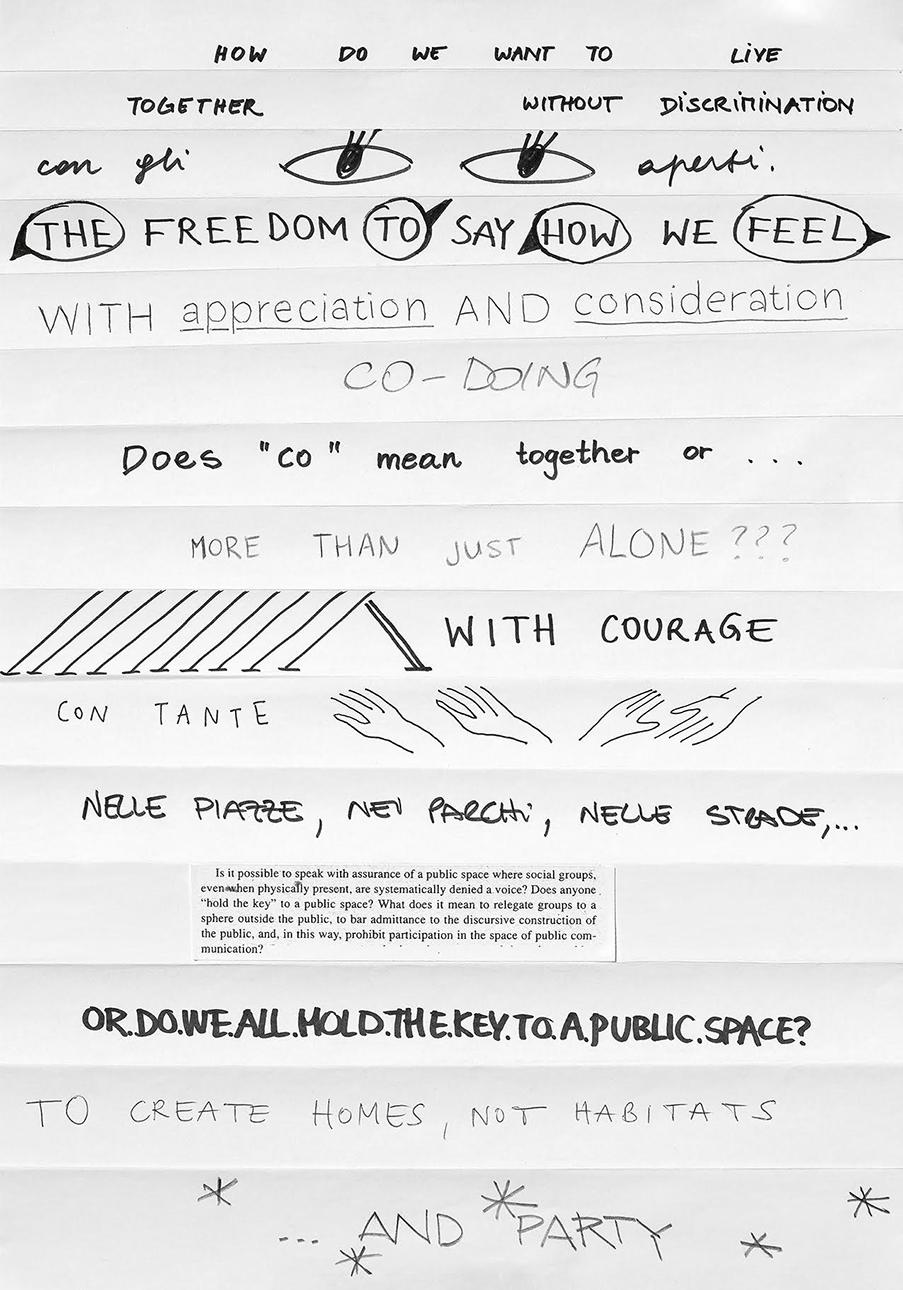 HOW DO WE WANT TO LIVE
TOGETHER WITHOUT DISCRIMINATION
con gli aperti.
THE FREEDOM TO SAY HOW WE FEEL
WITH appreciation AND consideration
CO-DOING
Does "co" mean together or ...
MORE THAN JUST ALONE???
WITH COURAGE
CON TANTE
NELLE PIAZZE, NEI PARCHI, NELLE STRADE,...
Is it possible to speak with assurance of a public space where social groups,
even when physically present, are systematically denied a voice? Does anyone
“hold the key” to a public space? What does it mean to relegate groups to a
sphere outside the public, to bar admittance to the discursive construction of
the public, and, in this way, prohibit participation in the space of public com-
munication?
OR.DO.WE.ALL.HOLD.THE.KEY.TO.A.PUBLIC.SPACE?
TO CREATE HOMES, NOT HABITATS
... AND PARTY